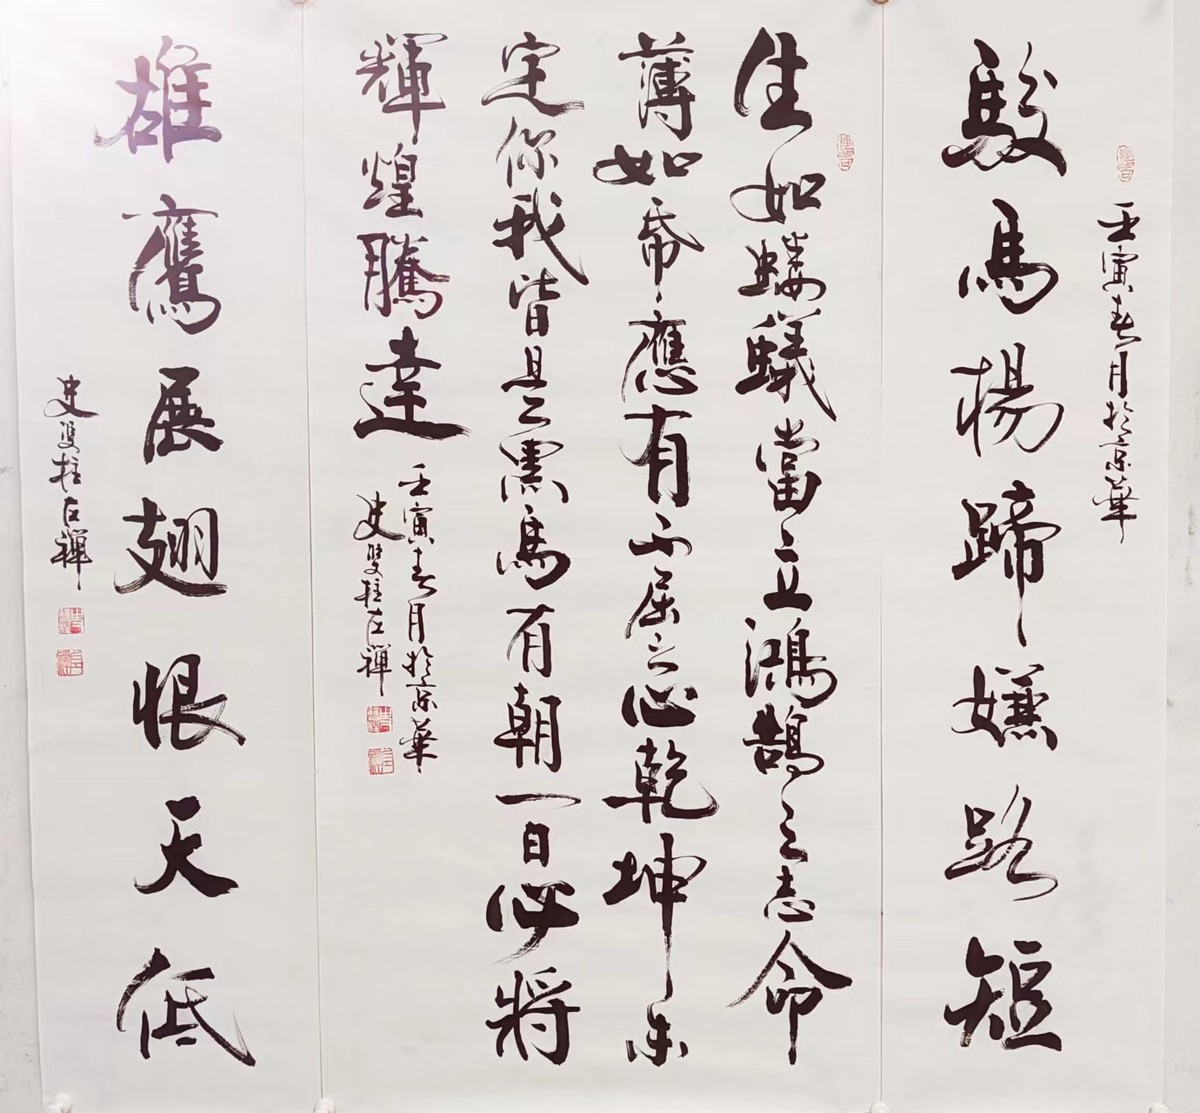 壬寅春月於京華
駿馬楊蹄嫌路短
生如螻蟻當立鴻鵠之志命
薄如帋應有不屈之心乾坤未
定你我皆是黑馬有朝一日必將
輝煌騰達
壬寅春月於京華
史雙柱左禪
雄鷹展翅恨天低
史双柱左禪